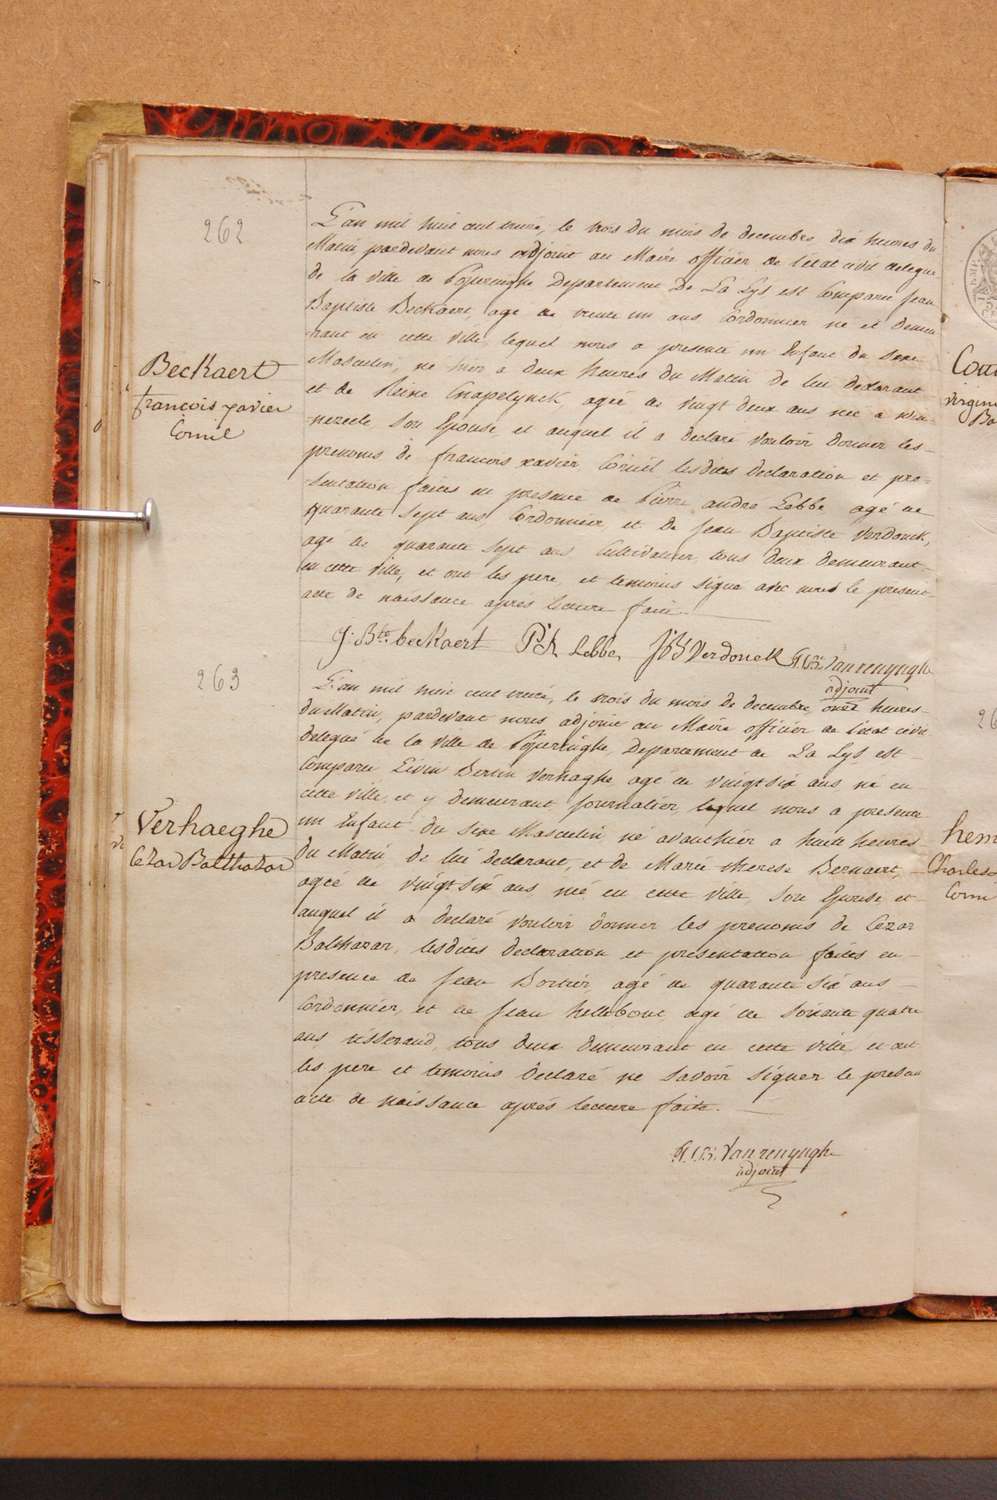 262
L'an mil huit cent treize, le trois du mois de decembre dix heures du
Matin, pardevant nous adjoint au Maire officier de l'état civil delegué
de la ville de Poperinghe Departement De La Lys est Comparu Jean
Baptiste Beckaert, agé de trente un ans Cordonnier né et demeu
rant en cette ville, lequel nous a presenté un Enfant du sexe
Masculin, né hier a deux heures du Matin de lui declarant
et de Reine Chapelynck, agée de vingt deux ans née a win-
nezeele, son Epouse, et auquel il a declaré vouloir donner les
prenoms de francois xavier Cornil lesdites declaration et pre-
sentation faites en presence de Pierre andré Lebbe agé de
quarante sept ans, Cordonnier et de Jean Baptiste Verdonck,
agé de quarante sept ans Cultivateur, tous deux demeurant
en cette ville, et ont les pere, et temoins signé avec nous le present
acte de naissance après lecture faite.
Beckaert
francois xavier
Cornil
J. Bte. beckaert P. A Lebbe J B Verdonck Vanrenynghe
adjoint
263
L'an mil huit cent treize, le trois du mois de decembre, onze heures
du Matin, pardevant nous adjoint au Maire officier de l'état civil
delegué de la ville de Poperinghe, Departement de La Lys est
Comparu Livin Bertin Verhaghe agé de vuingt six ans né en
cette ville, et y demeurant journalier, lequel nous a presenté
un Enfant du sexe Masculin né avanthier a huit heures
du Matin, de lui declarant, et de Marie therese Bernaert,
agée de vuingt six ans née en cette ville, son Epouse et
auquel il a declaré vouloir donner les prenoms de Cezar
Balthazar, lesdites declaration et presentation faites en
presence de Jean Bortier, agé de quarante six ans
Cordonnier, et de Jean hellebout agé de soixante quatre
ans tisserand, tous deux demeurant en cette ville, et ont
les pere et temoins declaré ne savoir signer le present
acte de naissance après lecture faite.
Verhaeghe
Cezar Balthazar
Vanrenynghe
adjoint